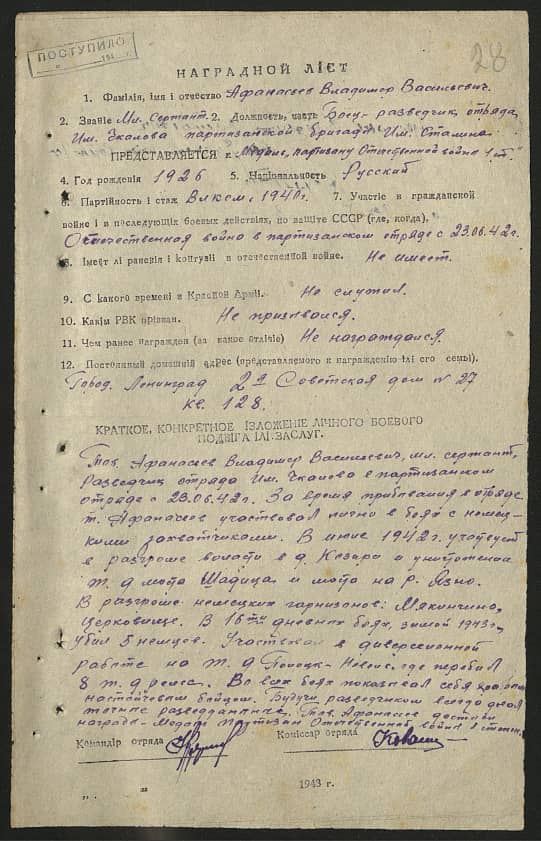 ПОСТУПИЛО
28
НАГРАДНОЙ ЛІСТ
1. Фамілія, імя и отчество Афанасьев Владимир Васильевич.
2. Звание Мл. сертант. 2. Должность, часть Боец-разведчик отряда
Им. Чкалова партизанской бригады Им. Сталина
ПРЕДСТАВЛЯЕТСЯ к Медаль, партизану Отечественной войны 1 ст."
4. Год рождения 1926 5. Національность Русский
6. Партійность і стаж Влксм, 1940г. 7. Участіе в гражданской
войне і в последующіх боевых действіях, по защіте СССР (где, когда).
Отечественная война в партизанском отряде с 23.06.42г.
8. Імеет лі раненія і контузіі в отечественной войне. Не имеет.
9. С какого времени в Красной Арміі. Не служил.
10. Какім РВК прізван. Не призывался.
11. Чем ранее награжден (за какое отлічіе) Не награждался.
12. Постоянный домашній адрес (представляемого к награжденію ілі его семьі).
Город. Ленинград 2я Советская дом № 27
кв. 128.
КРАТКОЕ, КОНКРЕТНОЕ ІЗЛОЖЕНІЕ ЛІЧНОГО БОЕВОГО
ПОДВІГА ІЛІ ЗАСЛУГ.
Тов. Афанасьев Владимир Васильевич, мл. сертант,
разведчик отряда Им. Чкалова в партизанском
отряде с 23.06.42г. За время прибывания в отряде
т. Афанасьев участвовал лично в боях с немец-
кими захватчиками. В июне 1942г. участвует
в разгроме волости в д. Кезара и уничтожении
ж. д моста Шадица и моста на р. Язно.
В разгроме немецких гарнизонов: Мякинчино,
Церковище. В 16ти дневных боях, зимой 1943г.
убил 5 немцев. Участвовал в диверсионной
работе на ж. д Полоцк-Невель, где перебил
8 ж. д рельс. Во всех боях показывал себя
настойчивым бойцом. Будучи разведчиком всегда давал
точные разведданные. Тов. Афанасьев достоин
награды - Медали Партизан Отечественной войны 1 степен.
Командір отряда Коміссар отряда
„ " 1943 г.